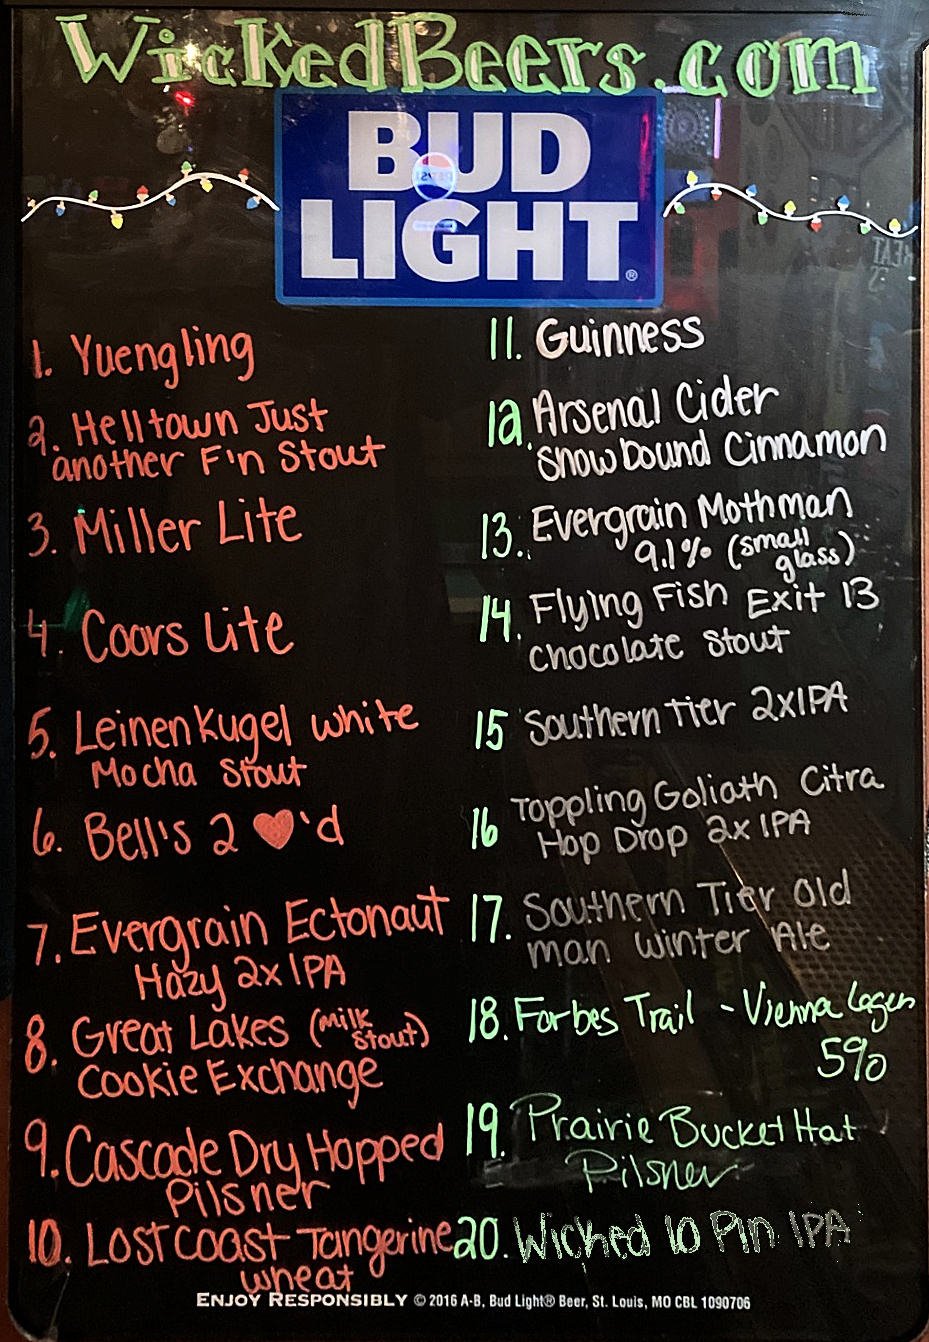 WickedBeers.com
BUD
LIGHT®
1. Yuengling
2. Helltown Just
another F'n Stout
3. Miller Lite
4. Coors Lite
5. Leinenkugel white
Mocha Stout
6. Bell's 2 ♥'d
7. Evergrain Ectonaut
Hazy 2x IPA
8. Great Lakes (Milk Stout)
Cookie Exchange
9. Cascade Dry Hopped
Pilsner
10. Lost Coast Tangerine
wheat
11. Guinness
12. Arsenal Cider
Snowbound Cinnamon
13. Evergrain Mothman
9.1% (small glass)
14. Flying Fish Exit 13
chocolate Stout
15 Southern Tier 2xIPA
16 Toppling Goliath Citra
Hop Drop 2x IPA
17. Southern Tier Old
man Winter Ale
18. Forbes Trail - Vienna Lager
5%
19. Prairie Bucket Hat
Pilsner
20. Wicked 10 Pin IPA
ENJOY RESPONSIBLY © 2016 A-B, Bud Light® Beer, St. Louis, MO CBL 1090706